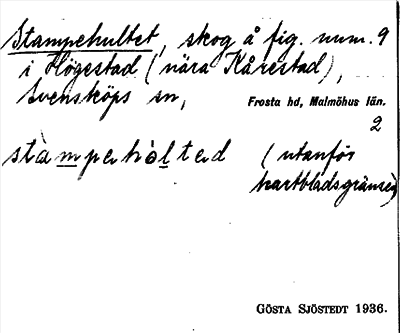 Stampehultet, skog å fig. num. 9
i Högestad (nära Kårestad),
Svensköps sn, Frosta hd, Malmöhus län.
2
stàmpehòlted (utanför
kartbladsgränsen)
GÖSTA SJÖSTEDT 1936.